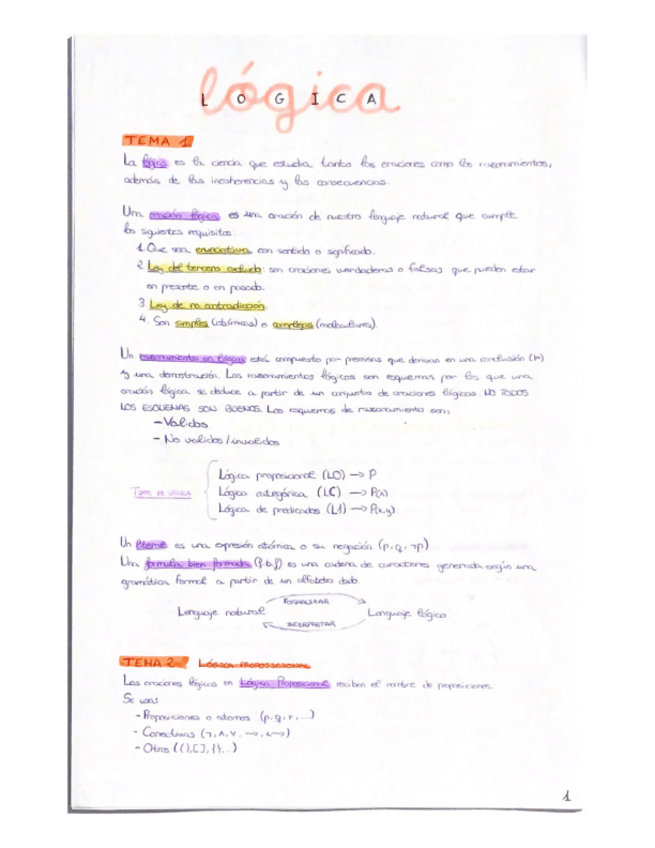 lógica
LOGICA
TEMA 1
La lógica es la ciencia que estudia tanto las oraciones como los razonamientos,
además de las incoherencias y las consecuencias.
Una oración lógica es una oración de nuestro lenguaje natural que cumple
los siguientes requisitos:
1. Que sea enunciativa con sentido o significado.
2. Ley del tercero excluido: son oraciones verdaderas o falsas que pueden estar
en presente o en pasado.
3. Ley de no contradicción.
4. Son simples (atómicas) o complejas (moleculares).
Un razonamiento en lógica está compuesto por premisas que derivan en una conclusión (⊢)
y una demostración. Los razonamientos lógicos son esquemas por los que una
oración lógica se deduce a partir de un conjunto de oraciones lógicas. NO TODOS
LOS ESQUEMAS SON BUENOS. Los esquemas de razonamiento son:
- Válidos
- No válidos / inválidos
TIPOS DE LÓGICA
Lógica proposicional (L0) → P
Lógica categórica (LC) → P(x)
Lógica de predicados (L1) → P(x,y)
Un literal es una expresión atómica o su negación. (p, q, ¬p)
Una formula bien formada (f.b.f) es una cadena de caracteres generada según una
gramática formal a partir de un alfabeto dado.
FORMALIZAR
Lenguaje natural Lenguaje lógico
INTERPRETAR
TEMA 2 LÓGICA PROPOSICIONAL
Las oraciones lógicas en Lógica Proposicional reciben el nombre de proposiciones.
Se usan:
- Proposiciones o átomos (p, q, r, ...)
- Conectivas (¬, ∧, ∨, →, ↔)
- Otros ((), [], {}...)
1